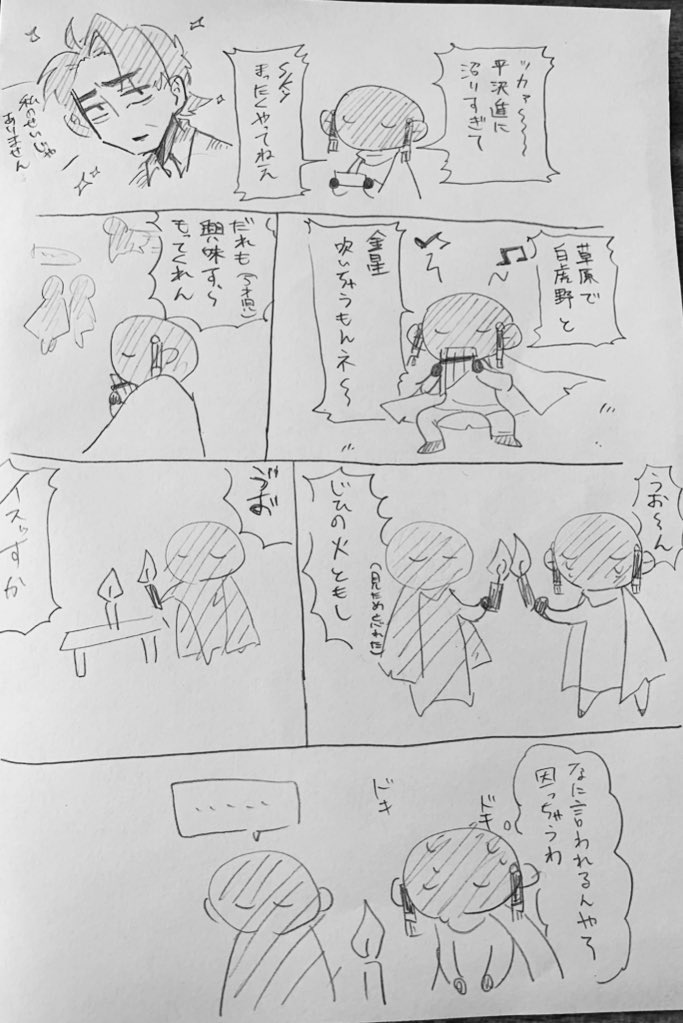 ツカァ〜〜〜〜
平沢進に
沼りすぎて
Sky
まったくやてねえ
私のせいじゃ
ありません
草原で
白虎野と
金星
吹いちゃうもんネ〜〜
だれも(今思)
興味すら
もってくれん
うお〜ん
じひの火ともし
(見ため忘れた)
うお
イスッすか
なに言われるんやろ
困っちゃうわ
ドキ
ドキ
.....